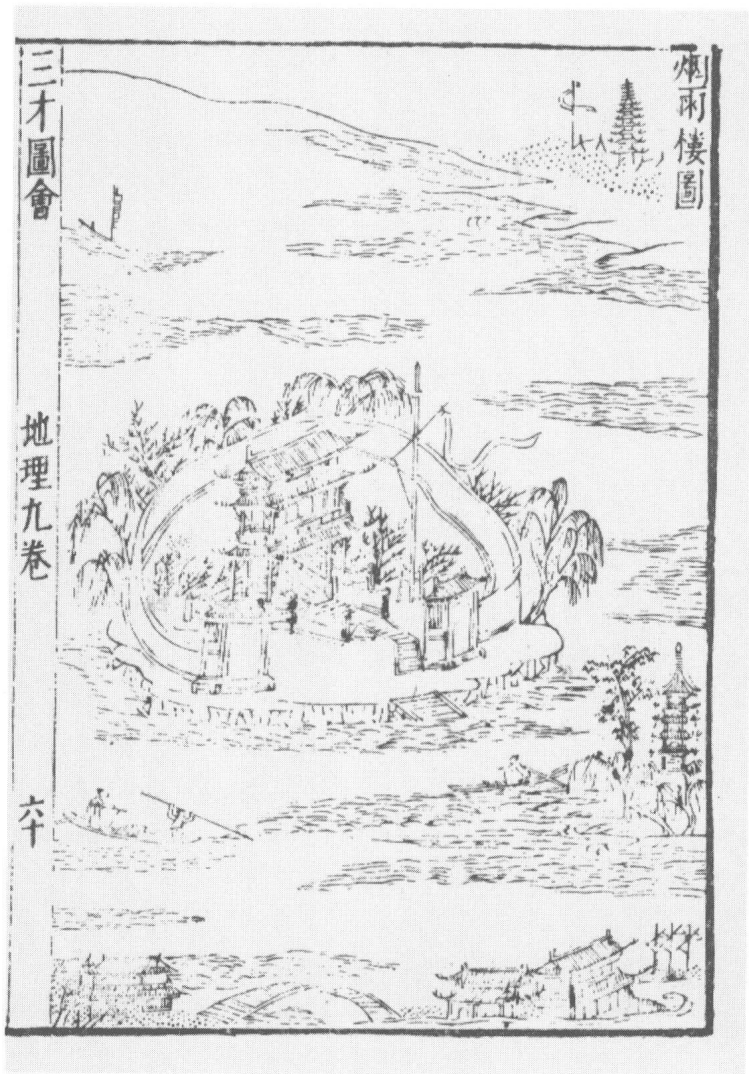 烟雨樓圖
三才圖會
地理九卷
六十